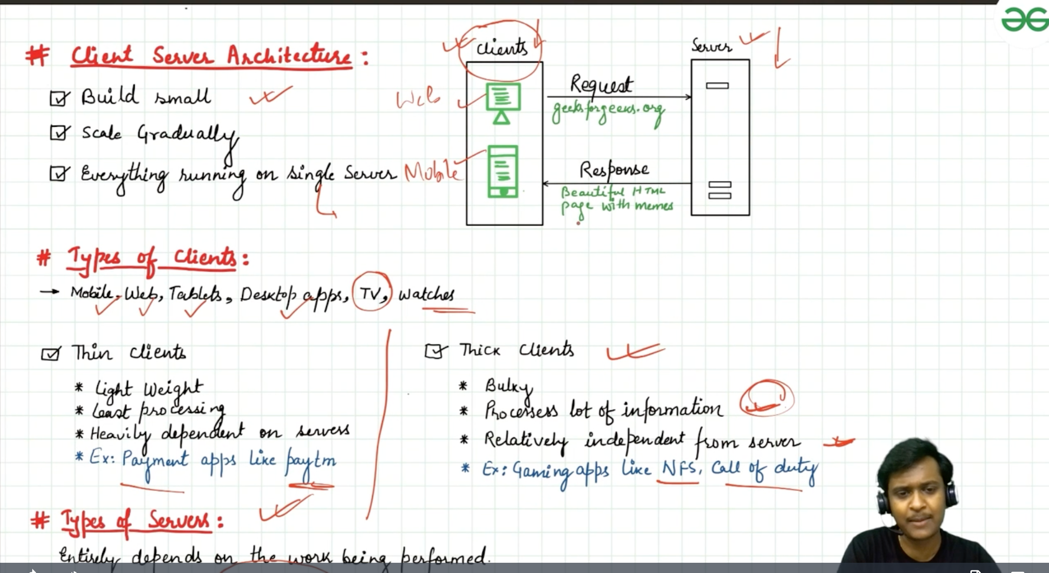 # Client Server Architecture:
Build small
Scale Gradually
Everything running on single Server
Clients
Server
Web
Mobile
Request
geeksforgeeks.org
Response
Beautiful HTML
page with memes
# Types of Clients:
→ Mobile, Web, Tablets, Desktop apps, TV, Watches
Thin clients
* Light Weight
* Least processing
* Heavily dependent on servers
* Ex: Payment apps like paytm
Thick Clients
* Bulky
* Processess lot of information
* Relatively independent from server
* Ex: Gaming apps like NFS, Call of duty
# Types of Servers:
Entirely depends on the work being performed.